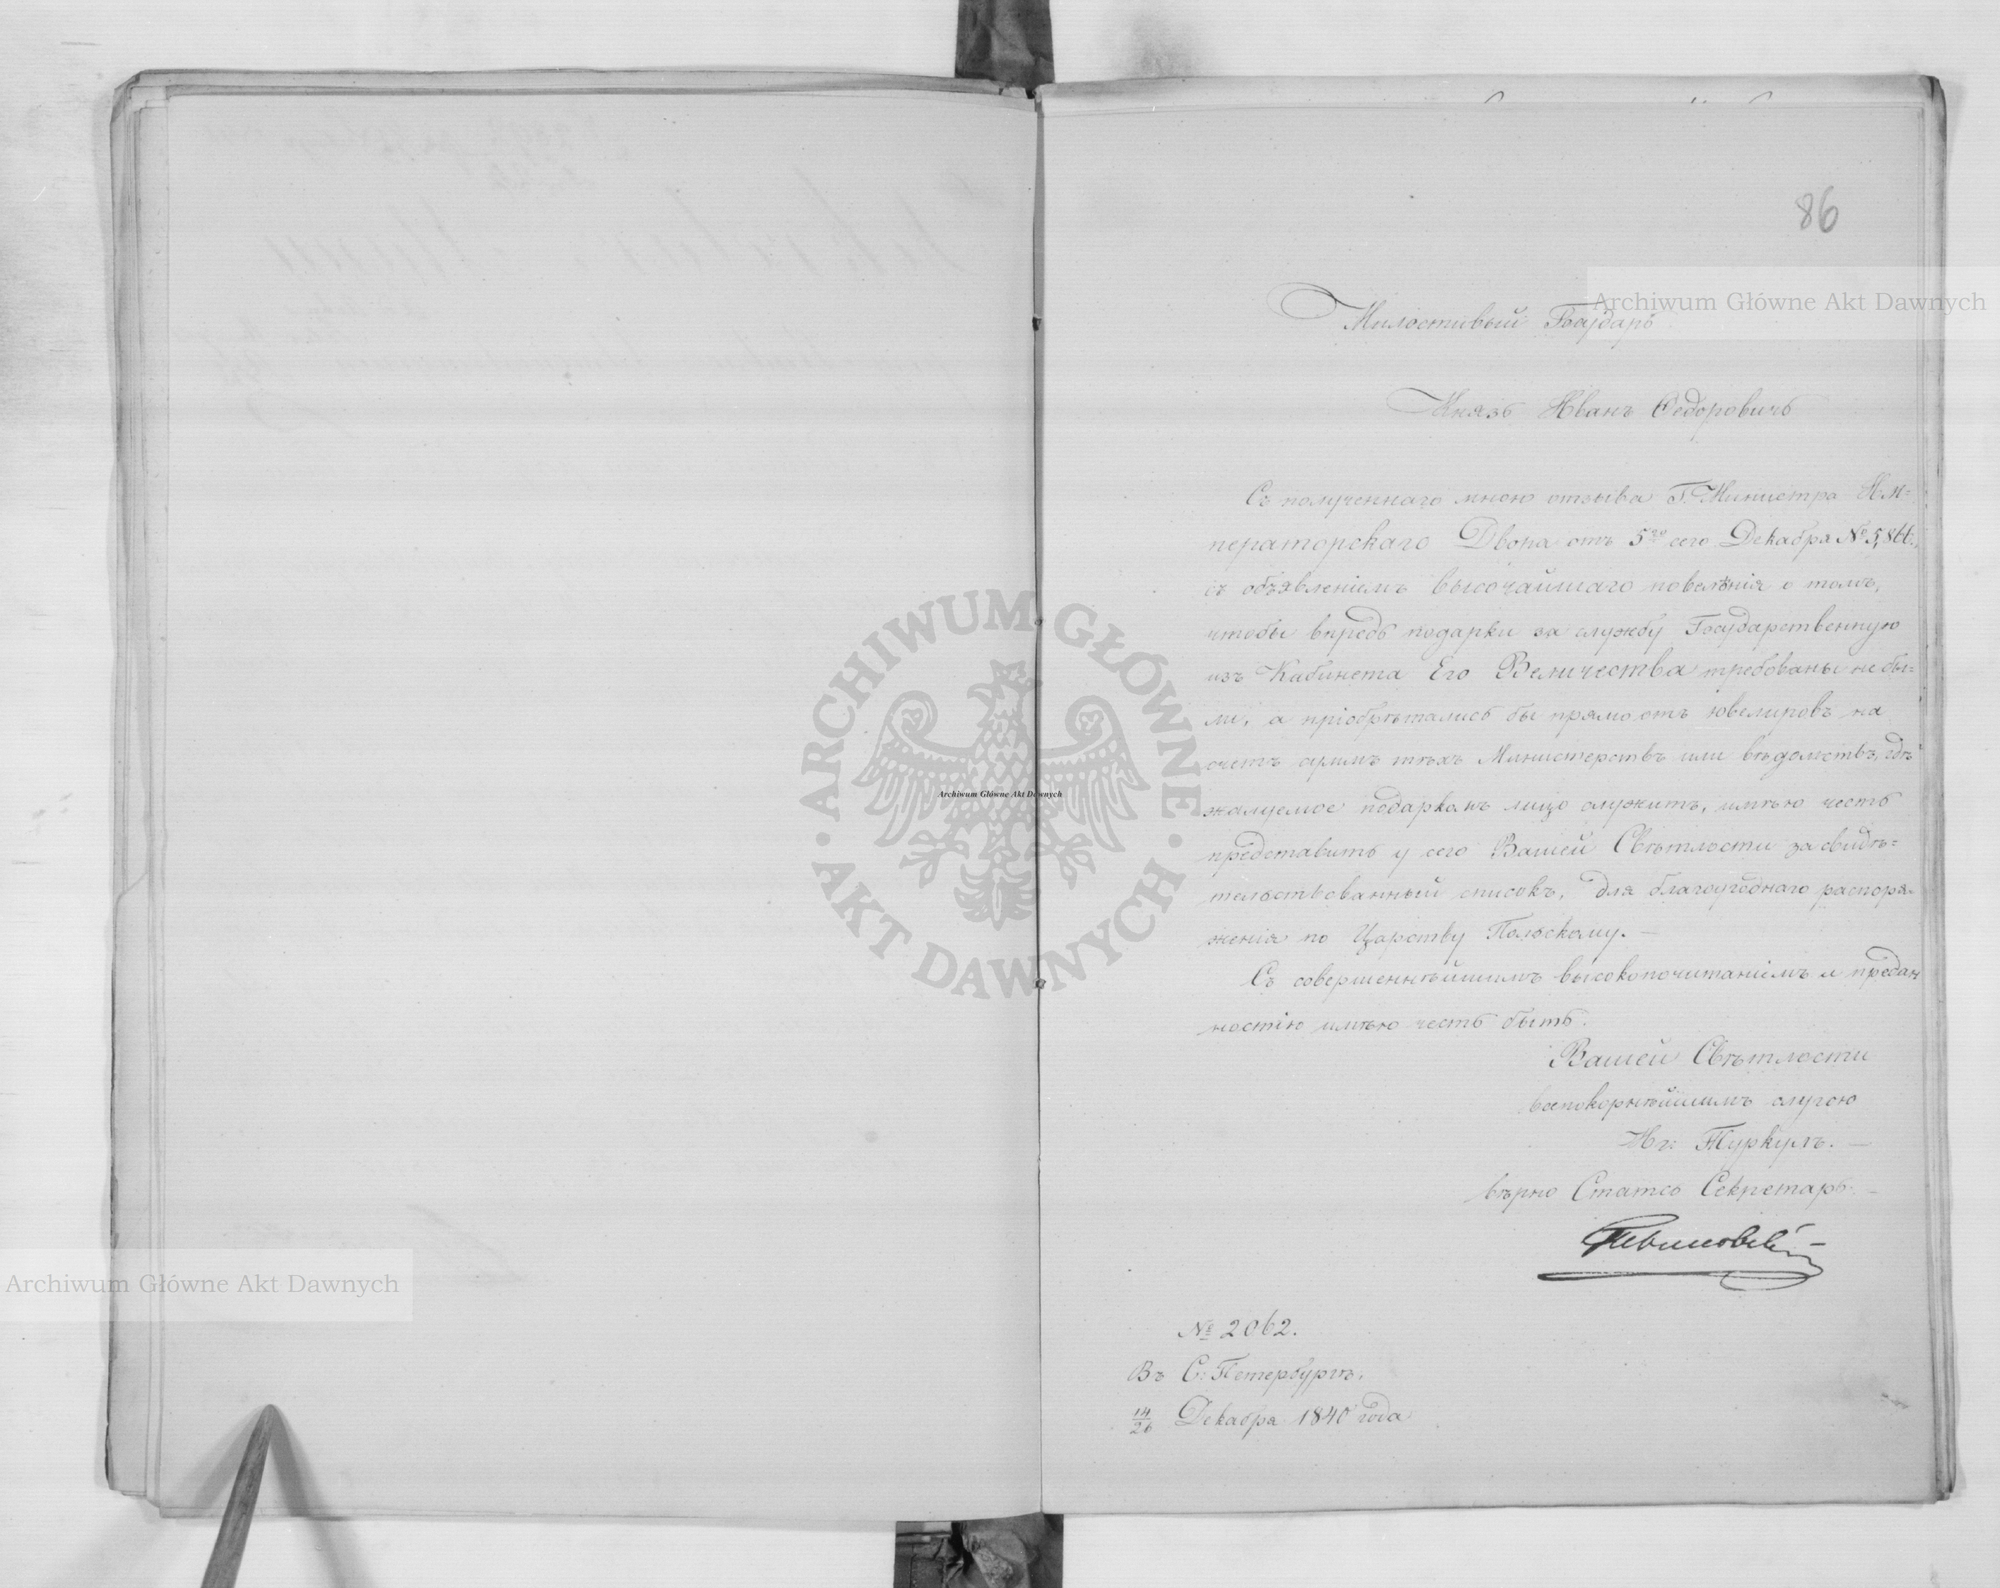 86
Милостивый Государь
Князь Иванъ Ѳедоровичъ
Съ полученнаго мною отзыва Г. Министра Им=
ператорскаго Двора отъ 5го сего Декабря №
съ объявленіемъ высочайшаго повелѣнія о томъ,
чтобы впредь подарки за службу Государственную
изъ Кабинета Его Величества требованы не бы=
ли, а пріобрѣтались бы прямо отъ ювелировъ на
счетъ суммъ тѣхъ Министерствъ или вѣдомствъ, гдѣ
жалуемое подаркомъ лицо служитъ, имѣю честь
представить у сего Вашей Свѣтлости засвидѣ=
тельствованный списокъ, для благоугоднаго распоря=
женія по Царству Польскому. —
Съ совершеннѣйшимъ высокопочитаніемъ и предан
ностію имѣю честь быть.
Вашей Свѣтлости
всепокорнѣйшимъ слугою
Иг: Туркулъ. —
вѣрно Статсъ Секретарь. —
№ 2062.
Въ С: Петербургѣ,
14/26 Декабря 1840 года
Archiwum Główne Akt Dawnych
Archiwum Główne Akt Dawnych
Archiwum Główne Akt Dawnych
ARCHIWUM GŁÓWNE · AKT DAWNYCH ·